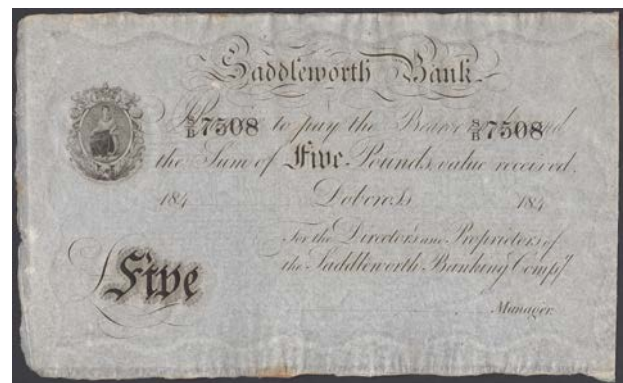 Saddleworth Bank
I Promise to pay the Bearer on Demand
S/B 7508 S/B 7508
the Sum of Five Pounds, value received.
184 Dobcross 184
For the Directors and Proprietors of
the Saddleworth Banking Compy.
£Five
Manager.